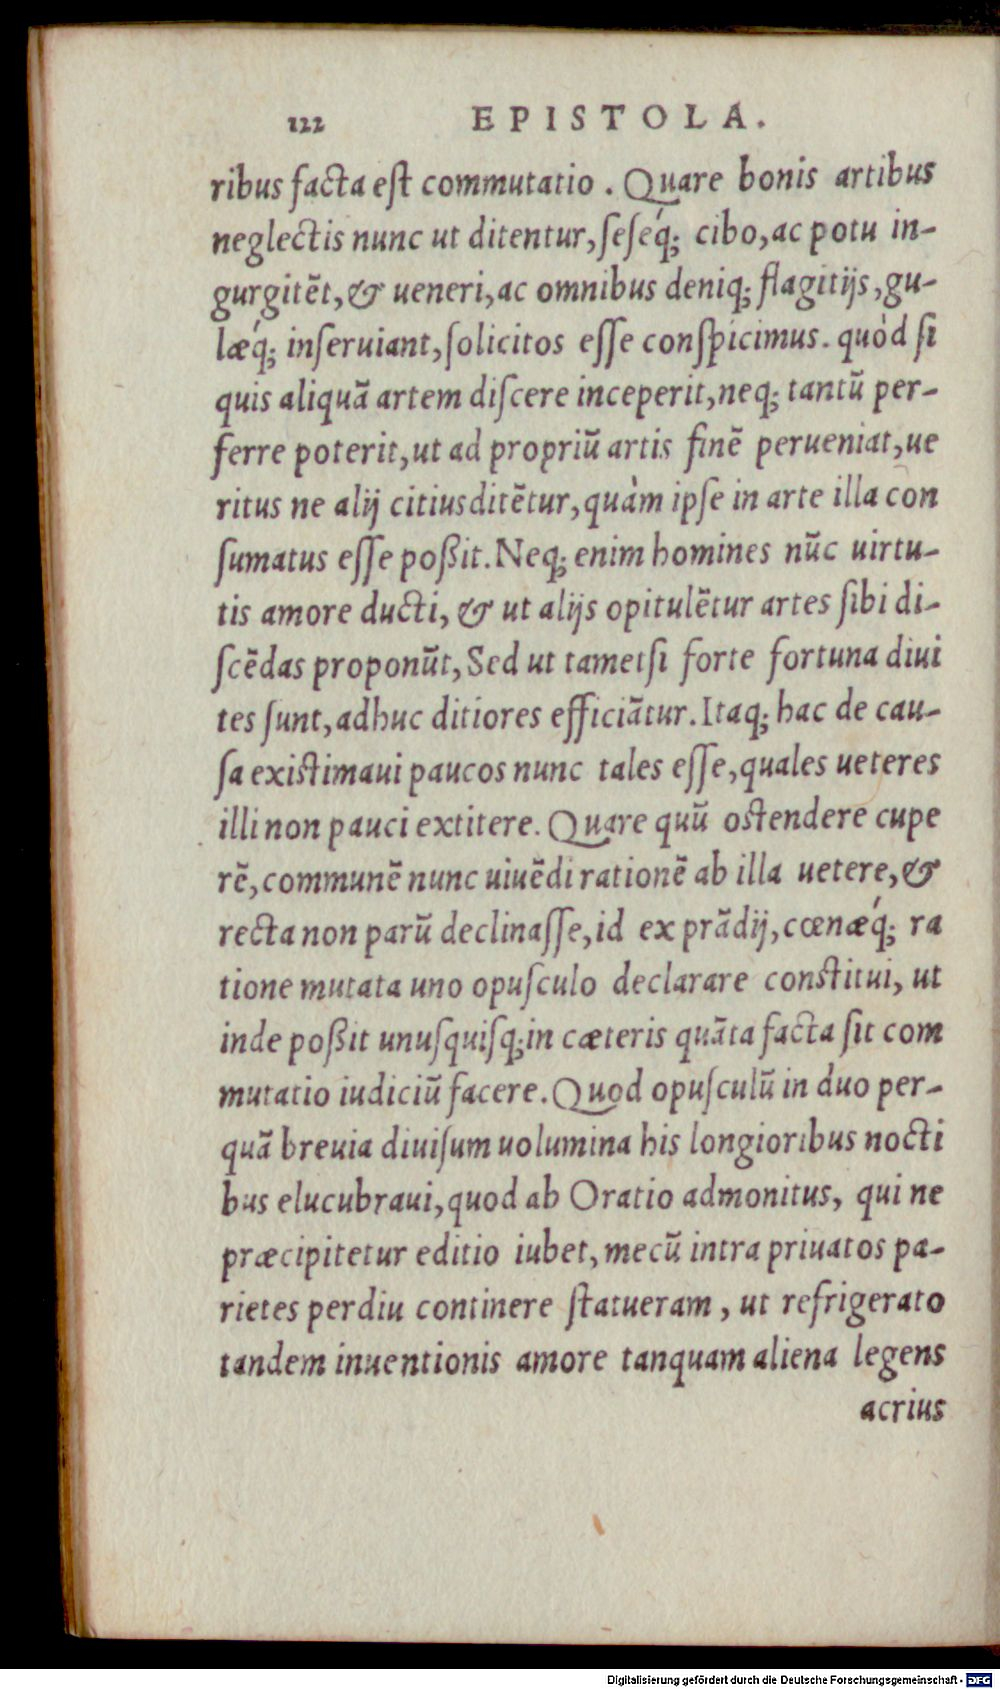 122 EPISTOLA.
ribus facta eſt commutatio. Quare bonis artibus
neglectis nunc ut ditentur, ſeſéq; cibo, ac potu in-
gurgitẽt, & ueneri, ac omnibus deniq; flagitijs, gu-
læq́; inſeruiant, ſolicitos eſſe conſpicimus. quòd ſi
quis aliquã artem diſcere inceperit, neq; tantũ per-
ferre poterit, ut ad propriũ artis finẽ perueniat, ue
ritus ne alij citius ditẽtur, quàm ipſe in arte illa con
ſumatus eſſe poßit. Neq; enim homines nũc uirtu-
tis amore ducti, & ut alijs opitulẽtur artes ſibi di-
ſcẽdas proponũt, Sed ut tametſi forte fortuna diui
tes ſunt, adhuc ditiores efficiãtur. Itaq; hac de cau-
ſa existimaui paucos nunc tales eſſe, quales ueteres
illi non pauci extitere. Quare quũ ostendere cupe
rẽ, communẽ nunc uiuẽdi rationẽ ab illa uetere, &
recta non parũ declinaſſe, id ex prãdij, cœnæq́; ra
tione mutata uno opuſculo declarare constitui, ut
inde poßit unuſquiſq; in cæteris quãta facta ſit com
mutatio iudiciũ facere. Quod opuſculũ in duo per-
quã breuia diuiſum uolumina his longioribus nocti
bus elucubraui, quod ab Oratio admonitus, qui ne
præcipitetur editio iubet, mecũ intra priuatos pa-
rietes perdiu continere ſtatueram, ut refrigerato
tandem inuentionis amore tanquam aliena legens
acrius
Digitalisierung gefördert durch die Deutsche Forschungsgemeinschaft - DFG